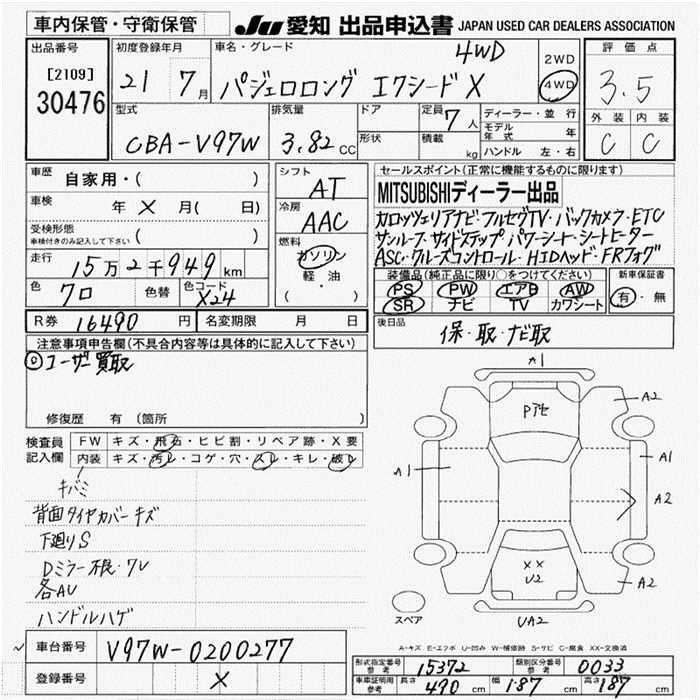 車内保管・守衛保管
JU 愛知 出品申込書 JAPAN USED CAR DEALERS ASSOCIATION
出品番号
[2109]
30476
初度登録年月
21 7月
車名・グレード
4WD
パジェロロング エクシードX
2WD
4WD
評価点
3.5
外装 内装
C C
型式
CBA-V97W
排気量
3.82 CC
ドア
形状
定員 7人
積載 kg
ディーラー・並行
モデル年式 年
ハンドル 左・右
車歴 自家用・( )
車検 年 X 月( 日)
受検形態
車検付きのみ記入して下さい ( )
走行 15万2千949km
色 クロ 色替 色コード X24
シフト AT
冷房 AAC
燃料
ガソリン
軽・油
( )
セールスポイント(正常に機能するものに限ります)
MITSUBISHIディーラー出品
カロッツェリアナビ・フルセグTV・バックカメラ・ETC
サンルーフ・サイドステップ パワーシート・シートヒーター
ASC・クルーズコントロール・HIDヘッド・FRフォグ
装備品(純正品に限り○をつけてください)
PS PW エアB AW
SR ナビ TV カワシート
新車保証書
有・無
R券 16490円 名変期限 月 日
後日品
保・取・ナビ取
注意事項申告欄(不具合内容等は具体的に記入して下さい)
◎ユーザー買取
修復歴 有 (箇所 )
検査員記入欄
FW キズ・飛石・ヒビ割・リペア跡・X要
内装 キズ・汚レ・コゲ・穴・スレ・キレ・破レ
キバミ
背面タイヤカバーキズ
下廻りS
Dミラー不良・ワレ
各AU
ハンドルハゲ
A1
A2
A1
A1
A2
XX
U2
A2
UA2
スペア
A-キズ E-エクボ U-凹み W-補修跡 S-サビ C-腐食 XX-交換済
車台番号 V97W-0200277
登録番号 X
形式指定番号 参考 15372 類別区分番号 参考 0033
車庫証明用 参考 長さ 490 cm 幅 187 cm 高さ 187 cm